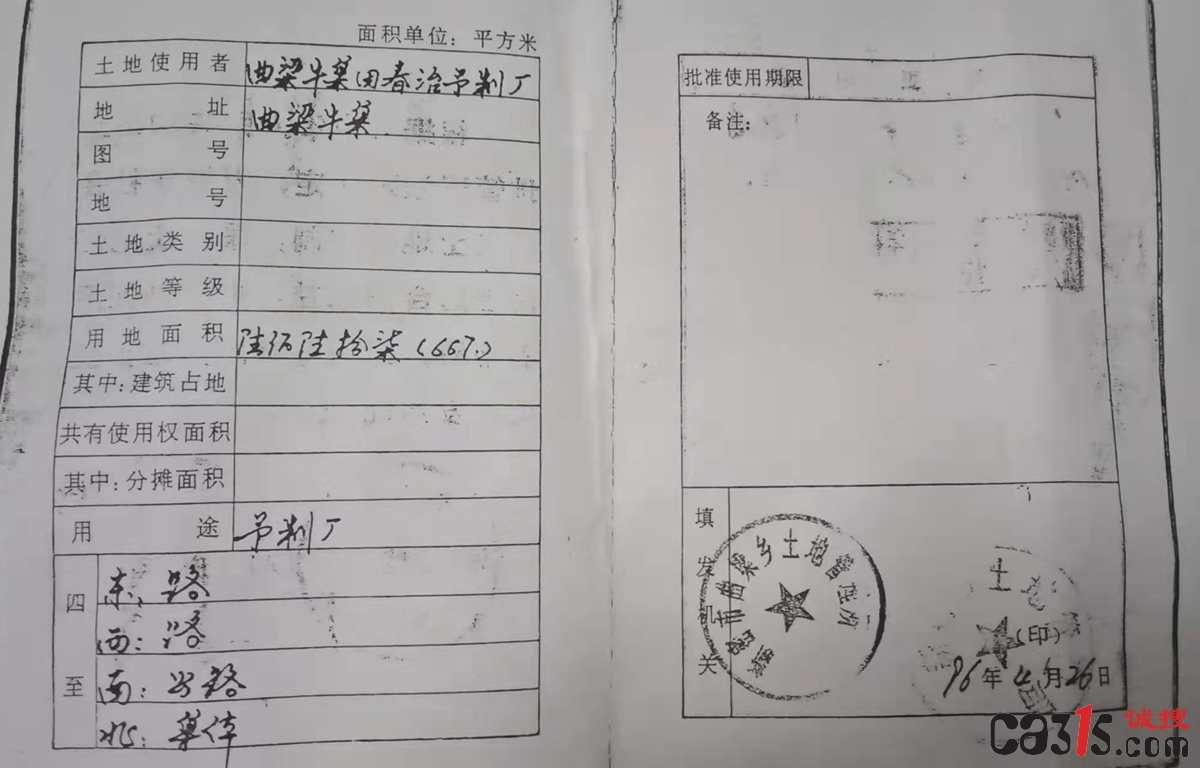 面积单位：平方米
土地使用者 曲梁牛集田春治予制厂
地址 曲梁牛集
图号
地号
土地类别
土地等级
用地面积 陆佰陆拾柒(667.)
其中：建筑占地
共有使用权面积
其中：分摊面积
用途 予制厂
四至
东：路
西：路
南：公路
北：集体
批准使用期限
备注：
填发机关
新密市曲梁乡土地管理所
土地
(印)
96年4月26日
ca315.com
诚搜